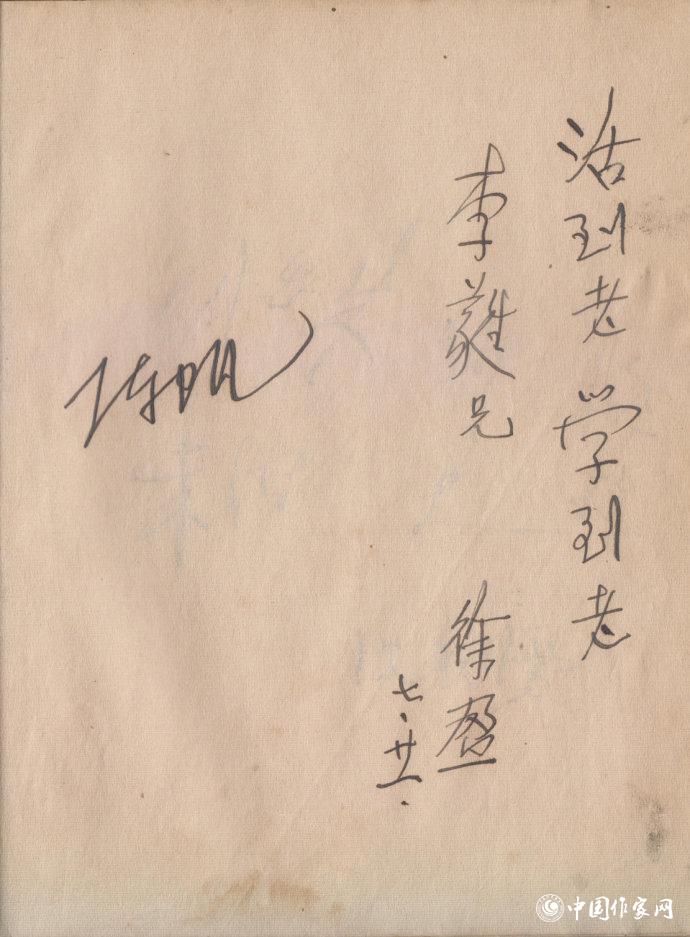 活到老 学到老
李蕤兄
徐盈
七·廿一·
陈明
中国作家网